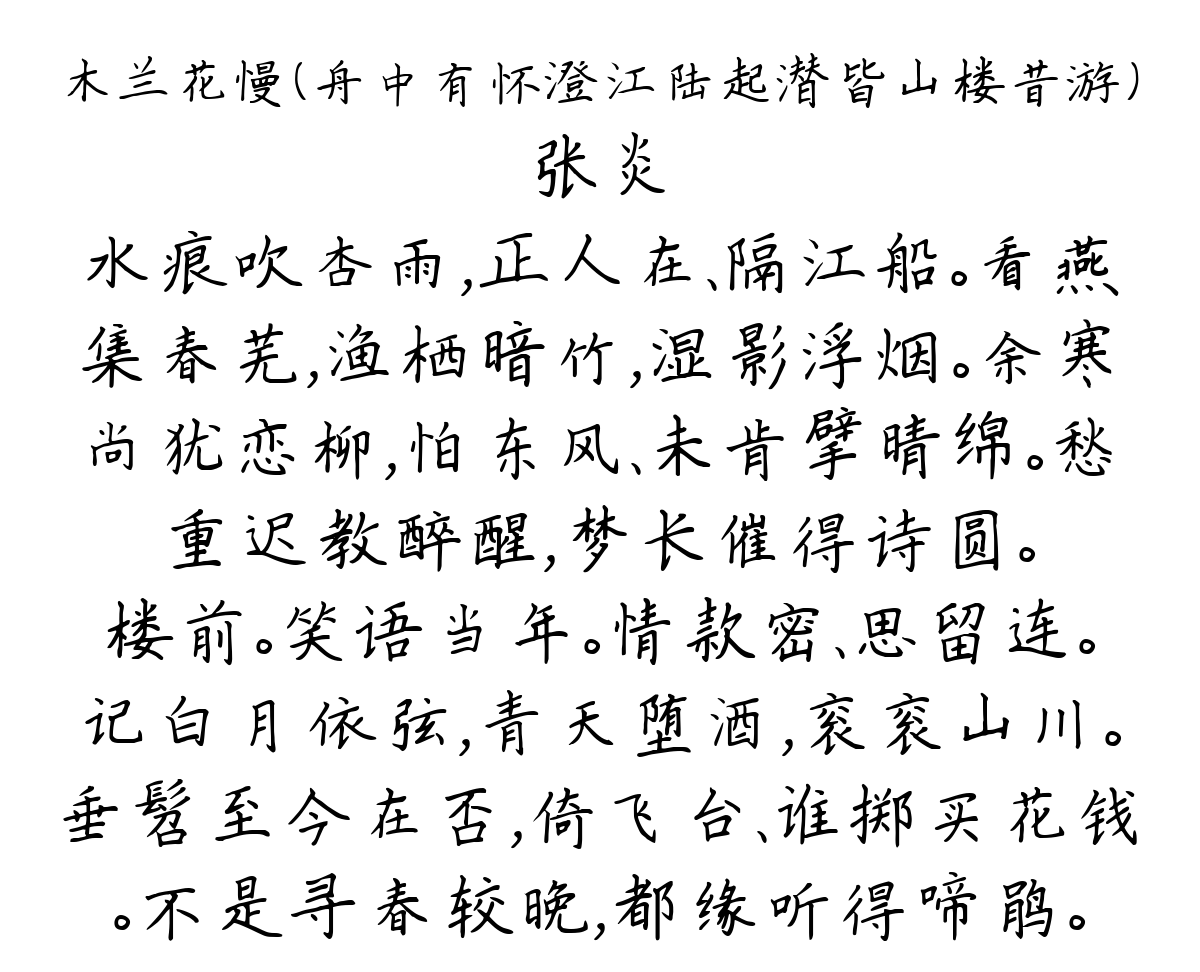 木兰花慢(舟中有怀澄江陆起潜皆山楼昔游)
张炎
水痕吹杏雨,正人在、隔江船。看燕
集春芜,渔栖暗竹,湿影浮烟。余寒
尚犹恋柳,怕东风、未肯擘晴绵。愁
重迟教醉醒,梦长催得诗圆。
楼前。笑语当年。情款密、思留连。
记白月依弦,青天堕酒,衮衮山川。
垂髫至今在否,倚飞台、谁掷买花钱
。不是寻春较晚,都缘听得啼鹃。